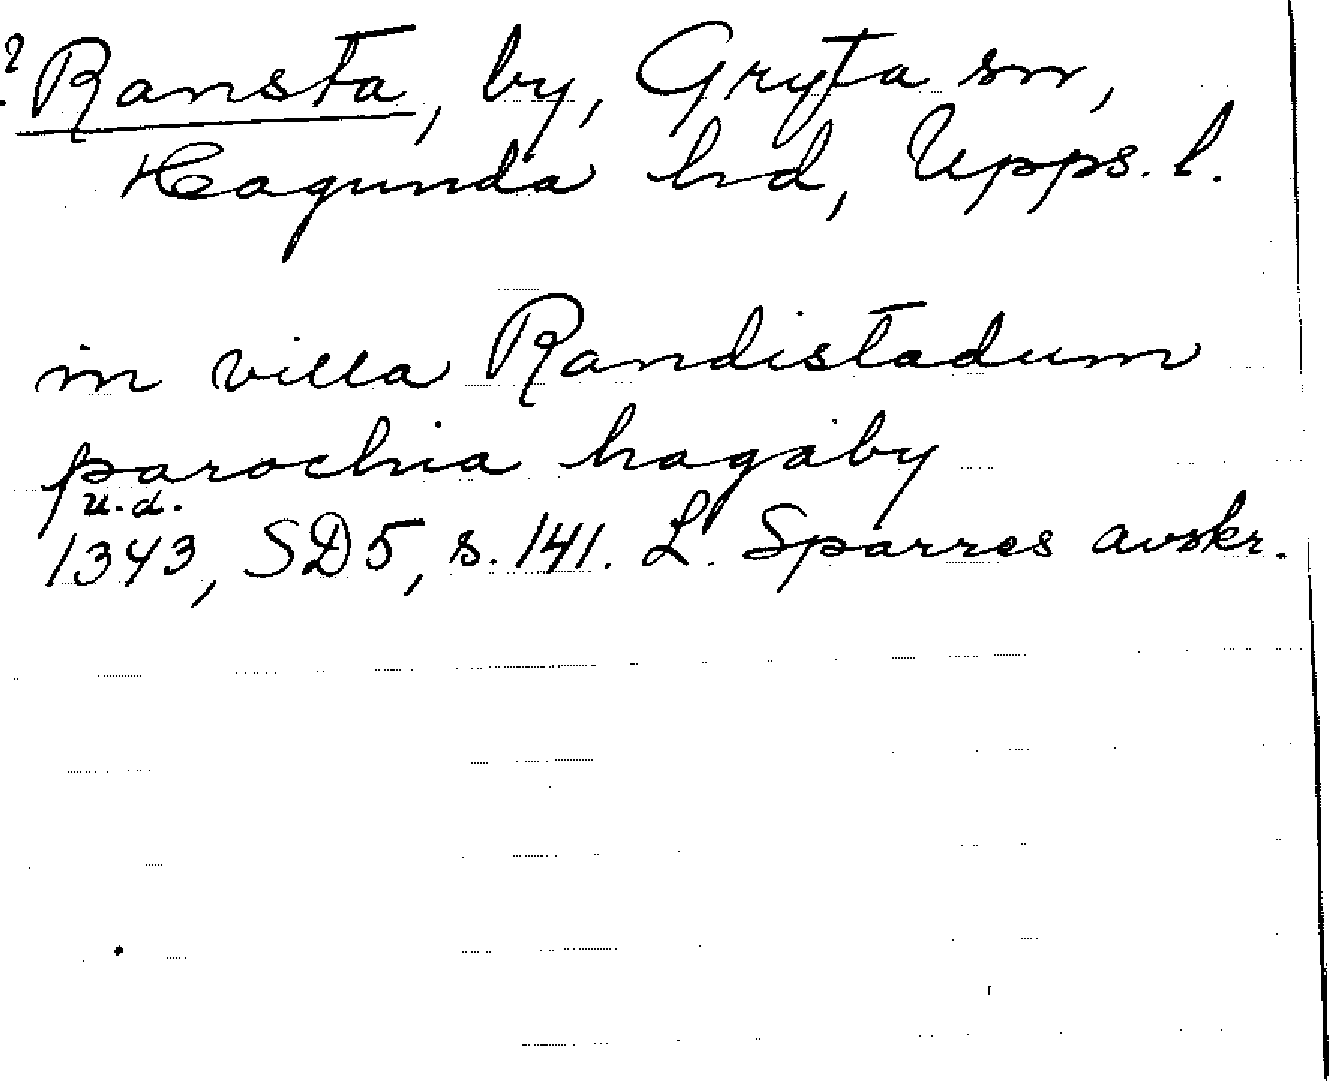 ? Ransta, by, Gryta sn,
Hagunda hd, Upps. l.
in villa Randistadum
parochia hagaby
u.d.
1343, SD5, s. 141. L. Sparres avskr.